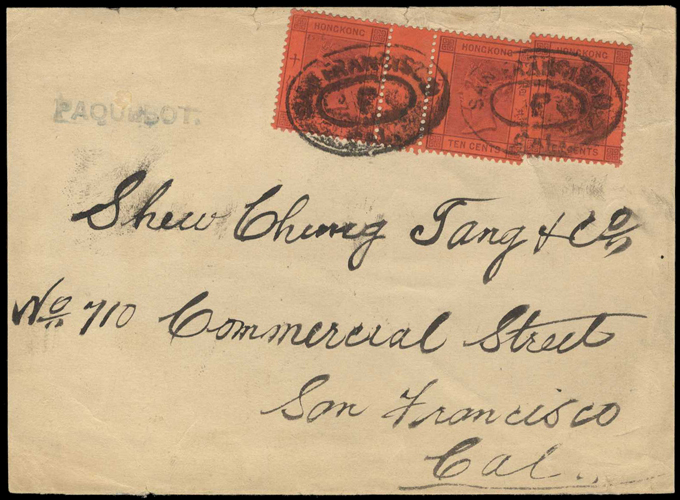 HONGKONG HONGKONG HONGKONG
SAN FRANCISCO SAN FRANCISCO
P P
CAL. CAL.
TEN CENTS CENTS
PAQUEBOT.
Shew Chung Tang & Co
No 710 Commercial Street
San Francisco
Cal.